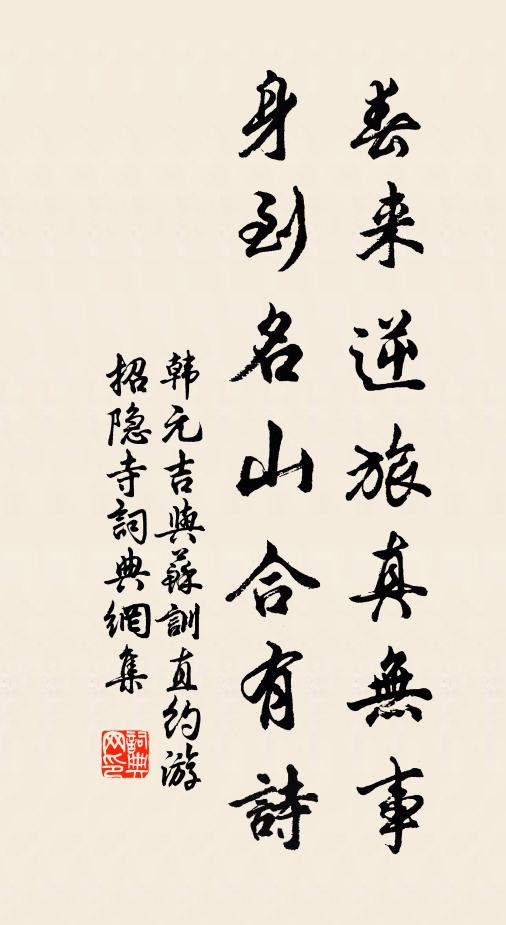 春来逆旅真無事
身到名山合有詩
韩元吉與蘇訓直约游
招隐寺詞典網集
詞典网印